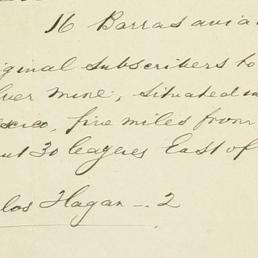 16 Barras avia
iginal subscribers to
lver mine, situated in
exico, five miles from
ut 30 leagues East of
los Hagan -- 2